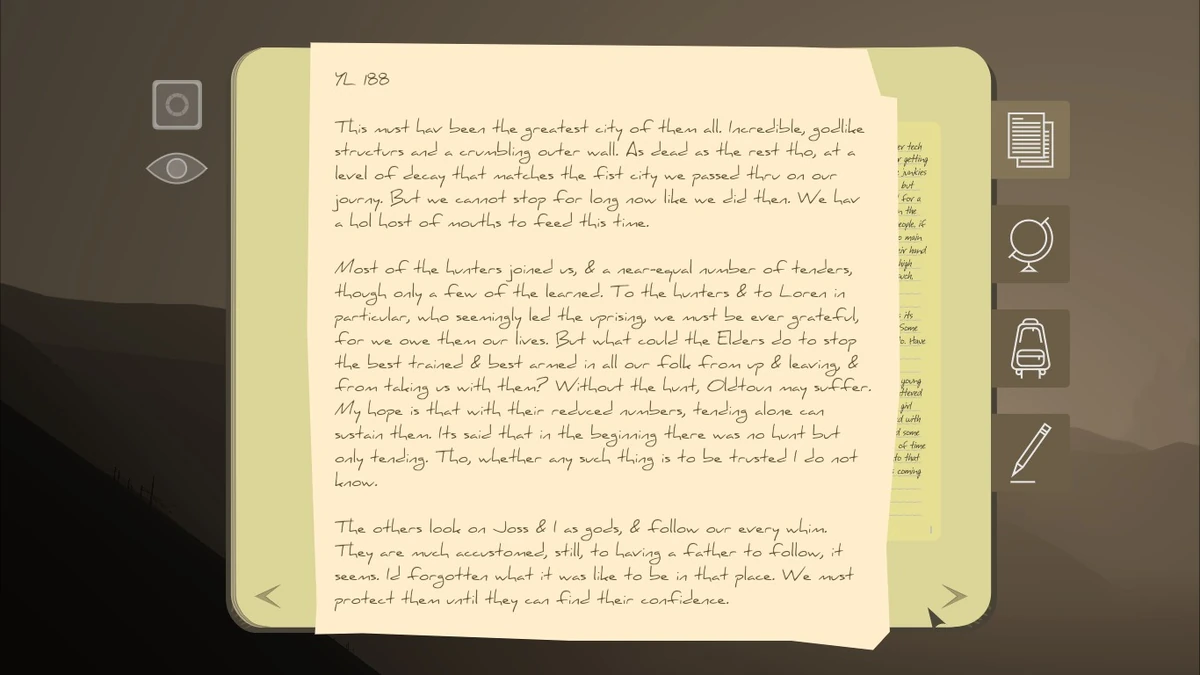 YL 188
This must hav been the greatest city of them all. Incredible, godlike
structurs and a crumbling outer wall. As dead as the rest tho, at a
level of decay that matches the fist city we passed thru on our
journy. But we cannot stop for long now like we did then. We hav
a hol host of mouths to feed this time.
Most of the hunters joined us, & a near-equal number of tenders,
though only a few of the learned. To the hunters & to Loren in
particular, who seemingly led the uprising, we must be ever grateful,
for we owe them our lives. But what could the Elders do to stop
the best trained & best armed in all our folk from up & leaving, &
from taking us with them? Without the hunt, Oldtoun may suffer.
My hope is that with their reduced numbers, tending alone can
sustain them. Its said that in the beginning there was no hunt but
only tending. Tho, whether any such thing is to be trusted I do not
know.
The others look on Joss & I as gods, & follow our every whim.
They are much accustomed, still, to having a father to follow, it
seems. Id forgotten what it was like to be in that place. We must
protect them until they can find their confidence.
er tech
r getting
junkies
but
for a
n the
eople. If
o main
eir hand
high
such,
its
Some
o. Have
young
ttered
girl
d with
d some
of time
to that
coming
1